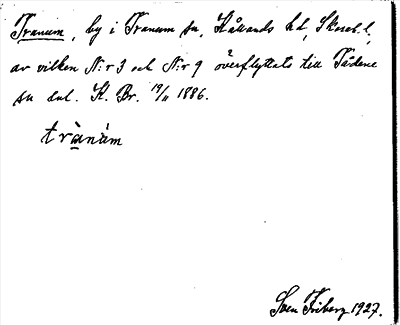 Tranum, by i Tranum sn, Kållands hd, Skarab. l,
av vilken N:r 3 och N:r 9 överflyttats till Tådene
sn enl. K. Br. 19/11 1886.
trànúm
Sven Friberg 1927.